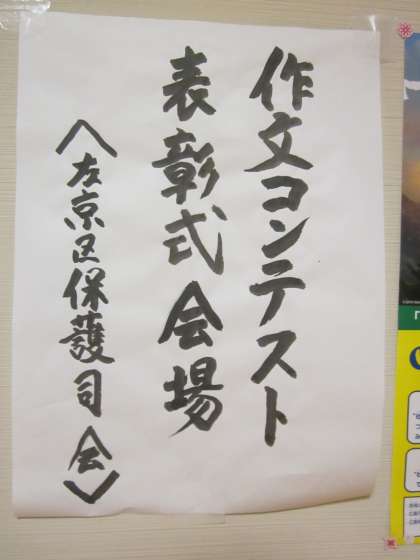 作文コンテスト
表彰式会場
〈左京区保護司会〉